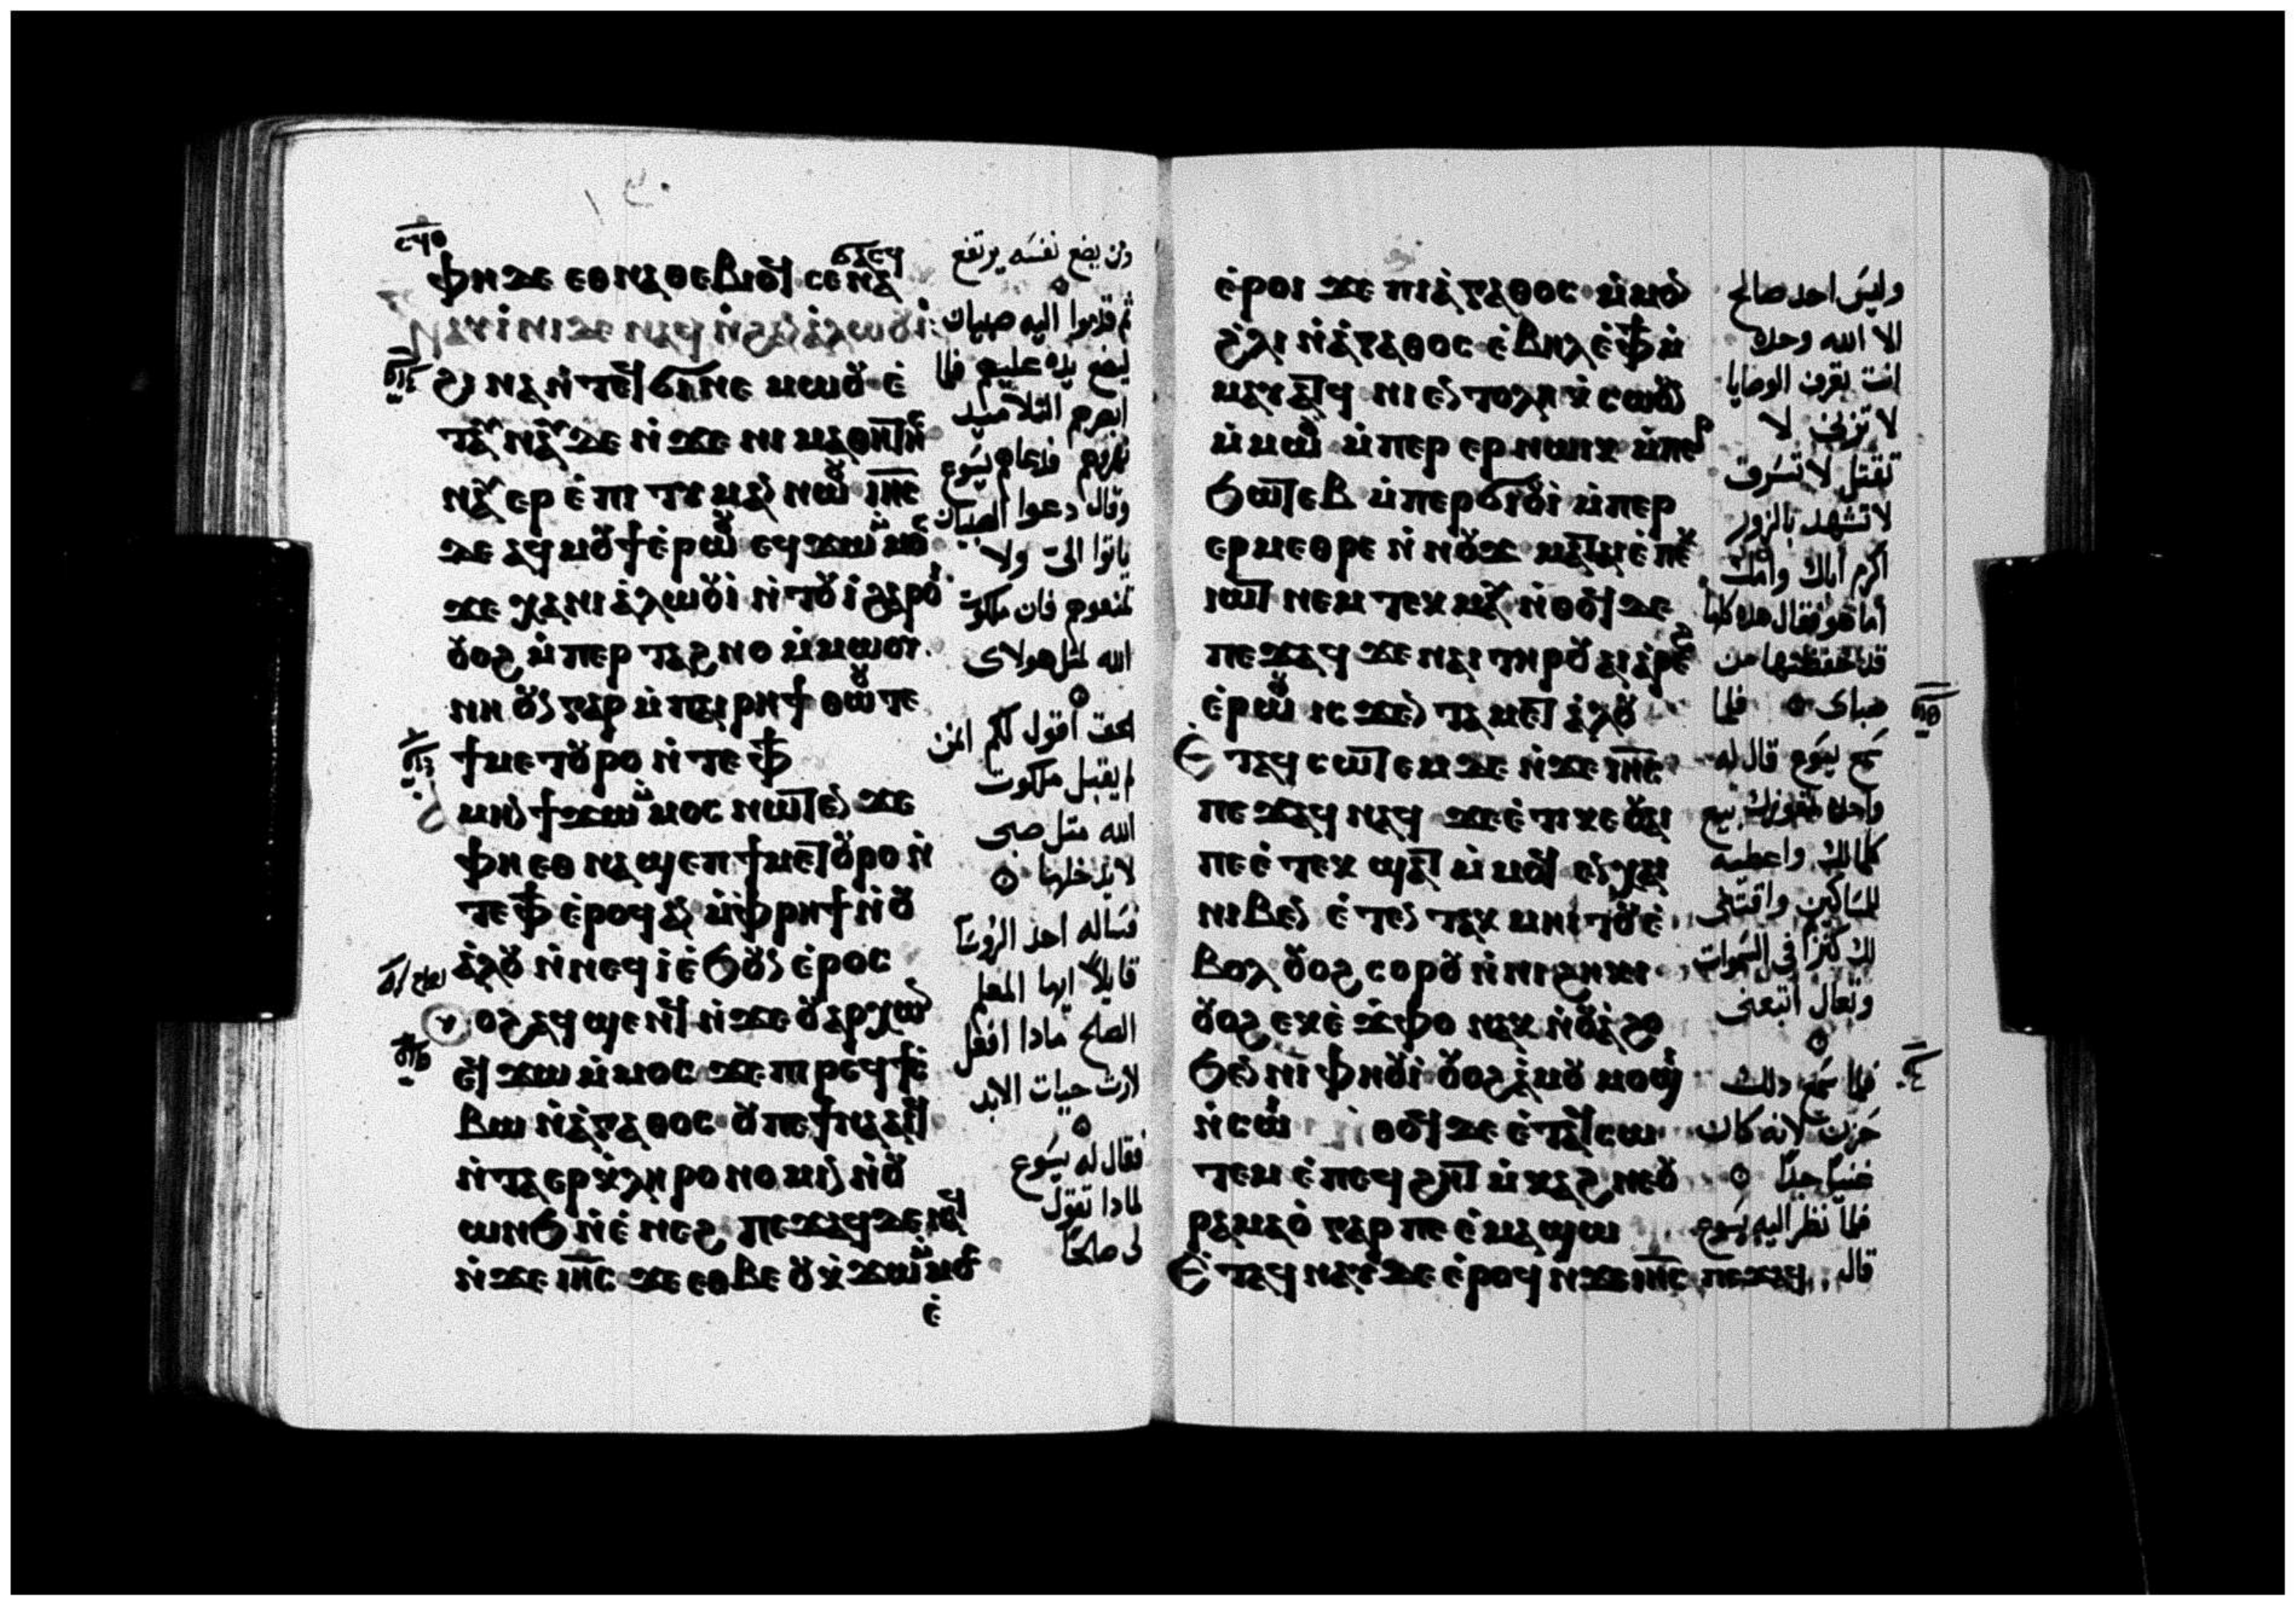 ⲫⲏ ⲇⲉ ⲉⲑⲛⲁⲑⲉⲃⲓⲟϥ ⲥⲉⲛⲁ
ϭⲁⲥϥ
ϩⲓ ⲛⲁⲛ̀ ⲧⲉϥϭⲓⲛⲉ ⲙⲱⲟⲩ ⲉ̀
ⲛⲁⲩ ⲉⲣ ⲉ̀ⲡⲓ ⲧⲓⲙⲁⲛ ⲛⲱⲟⲩ ⲓⲏⲥ
ϫⲉ ⲁϥⲙⲟⲩϯ ⲉ̀ⲣⲱⲟⲩ ⲉϥϫⲱ ⲙ̀ⲙⲟⲥ
ϫⲉ ⲭⲁ ⲛⲓ ⲁ̀ⲗⲱⲟⲩⲓ̀ ⲛ̀ⲧⲟⲩⲓ̀ ϩⲁⲣⲟⲓ
ⲟⲩⲟϩ ⲙ̀ⲡⲉⲣ ⲧⲁϩⲛⲟ ⲙ̀ⲙⲱⲟⲩ
ⲛⲏ ⲟⲩⲛ ⲅⲁⲣ ⲙ̀ⲡⲁⲓⲣⲏϯ ⲑⲱⲟⲩ ⲧⲉ
ϯⲙⲉⲧⲟⲩⲣⲟ ⲛ̀ⲧⲉ ⲫϯ
ⲁⲙⲏⲛ ϯϫⲱ ⲙ̀ⲙⲟⲥ ⲛⲱⲧⲉⲛ ϫⲉ
ⲫⲏ ⲉⲑ ⲛⲁϣⲉⲡ ϯⲙⲉⲧⲟⲩⲣⲟ ⲛ̀
ⲧⲉ ⲫϯ ⲉ̀ⲣⲟϥ ⲁⲛ ⲙ̀ⲫⲣⲏϯ ⲛ̀ⲟⲩ
ⲁ̀ⲗⲟⲩ ⲛ̀ⲛⲉϥⲓ̀ ⲉ̀ϧⲟⲩⲛ ⲉ̀ⲣⲟⲥ
ⲟⲩⲟϩ ⲁϥϣⲉⲛϥ ⲛ̀ϫⲉ ⲟⲩⲁⲣⲭⲱⲛ
ⲉϥϫⲱ ⲙ̀ⲙⲟⲥ ϫⲉ ⲡⲓ ⲣⲉϥϯⲥ̀
ⲃⲱ ⲛ̀ⲁ̀ⲅⲁⲑⲟⲥ ⲟⲩ ⲡⲉϯⲛⲁⲁⲓϥ
ⲛ̀ⲧⲁⲉⲣⲕ̀ⲗⲏⲣⲟⲛⲟⲙⲓⲛ ⲛ̀ⲟⲩ
ⲱⲛϧ ⲛ̀ⲉ̀ⲛⲉϩ ⲡⲉϫⲁϥ ϫⲉ ⲛⲁϥ
ⲛ̀ϫⲉ ⲓⲏⲥ ϫⲉ ⲉⲑⲃⲉ ⲟⲩ ⲕ̀ϫⲱ ⲙ̀ⲙⲟⲥ
ⲉ̀
ومن يضع نفسه يرتفع
ثم قدموا اليه صبيان
ليضع يده عليهم فلما
ابصرهم التلاميد
نهروهم فدعاهم يسوع
وقال دعوا الصبيان
ياتوا الىّ ولا
تمنعوهم فان ملكوت
الله لمثل هولاى
الحق اقول لكم ان من
لم يقبل ملكوت
الله مثل صبى
لا يدخلها
فساله احد الروسا
قايلا ايها المعلم
الصالح مادا افعل
لارث حيات الابد
فقال له يسوع
لمادا تقول
لى صالحا
ⲉ̀ⲣⲟⲓ ϫⲉ ⲡⲓⲁ̀ⲅⲁⲑⲟⲥ ⲙ̀ⲙⲟⲛ
ϩ̀ⲗⲓ ⲛ̀ⲁ̀ⲅⲁⲑⲟⲥ ⲉ̀ⲃⲏⲗ ⲉ̀ⲫϯ ⲙ̀
ⲙⲁⲩⲁⲧϥ ⲛⲓⲉⲛⲧⲟⲗⲏ ⲕ̀ⲥⲱⲟⲩⲛ
ⲙ̀ⲙⲱⲟⲩ ⲙ̀ⲡⲉⲣ ⲉⲣ ⲛⲱⲓⲕ ⲙ̀ⲡⲉⲣ
ϧⲱⲧⲉⲃ ⲙ̀ⲡⲉⲣϭⲓⲟⲩⲓ̀ ⲙ̀ⲡⲉⲣ
ⲉⲣⲙⲉⲑⲣⲉ ⲛ̀ⲛⲟⲩϫ ⲙⲁⲧⲁⲓⲉ̀ ⲡⲉⲕ
ⲓⲱⲧ ⲛⲉⲙ ⲧⲉⲕ ⲙⲁⲩ ⲛ̀ⲑⲟϥ ⲇⲉ
ⲡⲉϫⲁϥ ϫⲉ ⲛⲁⲓ ⲧⲏⲣⲟⲩ ⲁⲓⲁ̀ⲣⲉϩ
ⲉ̀ⲣⲱⲟⲩ ⲓⲥϫⲉⲛ ⲧⲁⲙⲉⲧⲁ̀ⲗⲟⲩ
ⲉ̀ⲧⲁϥⲥⲱⲧⲉⲙ ⲇⲉ ⲛ̀ϫⲉ ⲓⲏⲥ
ⲡⲉϫⲁϥ ⲛⲁϥ ϫⲉ ⲉ̀ⲧⲓ ⲕⲉ ⲟⲩⲁⲓ
ⲡⲉ ⲉ̀ⲧⲉⲕ ϣⲁⲧ ⲙ̀ⲙⲟϥ ⲉⲛⲭⲁⲓ
ⲛⲓⲃⲉⲛ ⲉ̀ⲧⲉⲛⲧⲁⲕ ⲙⲏⲓⲧⲟⲩ ⲉ̀
ⲃⲟⲗ ⲟⲩⲟϩ ⲥⲟⲣⲟⲩ ⲛ̀ⲛⲓϩⲏⲕⲓ
ⲟⲩⲟϩ ⲉⲕⲉ̀ϫ̀ⲫⲟ ⲛⲁⲕ ⲛ̀ⲟⲩⲁ̀ϩⲟ
ϧⲉⲛ ⲛⲓⲫⲏⲟⲩⲓ̀ ⲟⲩⲟϩ ⲁ̀ⲙⲟⲩ ⲙⲟϣⲓ
ⲛ̀ⲥⲱⲓ ⲛ̀ⲑⲟϥ ⲇⲉ ⲉ̀ⲧⲁϥⲥⲱ
ⲧⲉⲙ ⲉ̀ⲡⲉϥϩⲏⲧ ⲙ̀ⲕⲁϩ ⲛⲉ ⲟⲩ
ⲣⲁⲙⲁⲟ̀ ⲅⲁⲣ ⲡⲉ ⲉ̀ⲙⲁϣⲱ
ⲉ̀ⲧⲁϥ ⲛⲁⲩ ⲇⲉ ⲉ̀ⲣⲟϥ ⲛ̀ϫⲉ ⲓⲏⲥ ⲡⲉϫⲁϥ
وليس احد صالح
الا الله وحده
انت تعرف الوصايا
لا تزنى لا
تقتل لا تسرق
لا تشهد بالزور
اكرم اباك وامك
اما هو فقال هده كلها
قد حفظتها من
صباى فلما
سمع يسوع قال له
واحده تعوزك بيع
كلمالك واعطيه
للمساكين واقتنى
لك كنزا فى السموات
وتعال اتبعنى
فلما سمع دلك
حزن لانه كان
غنيا جدا
فلما نظر اليه يسوع
قال